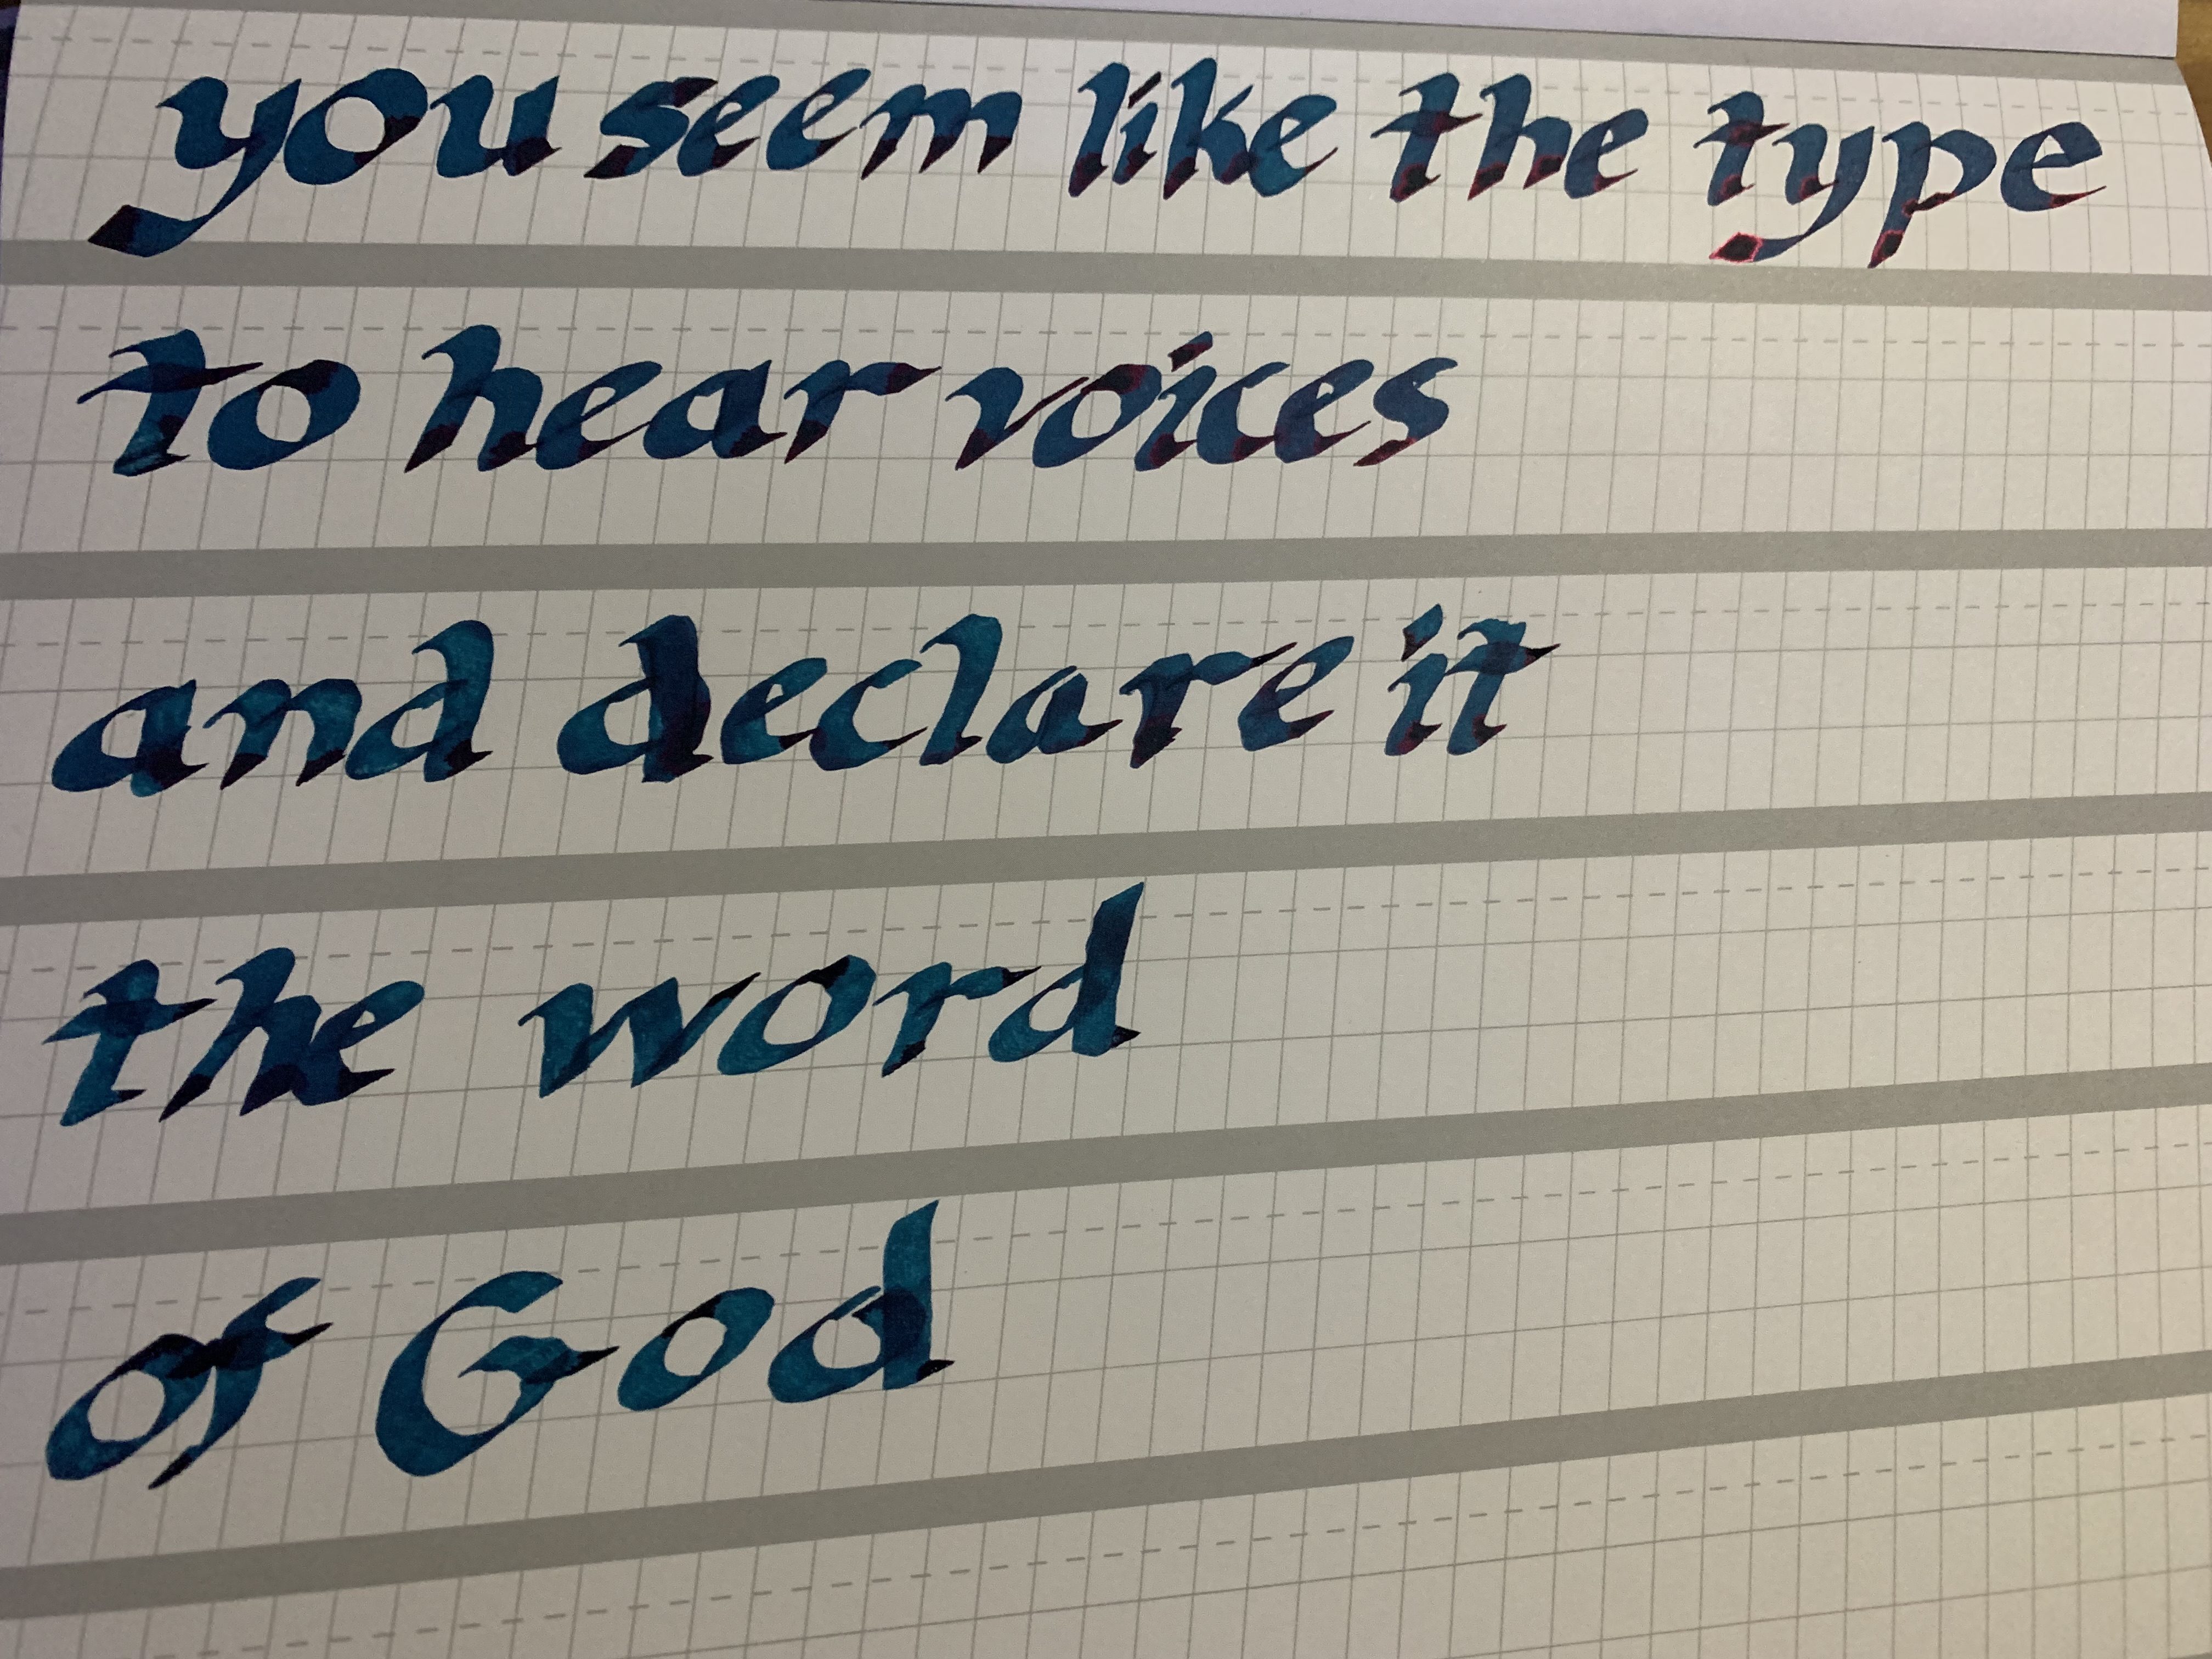 you seem like the type
to hear voices
and declare it
the word
of God